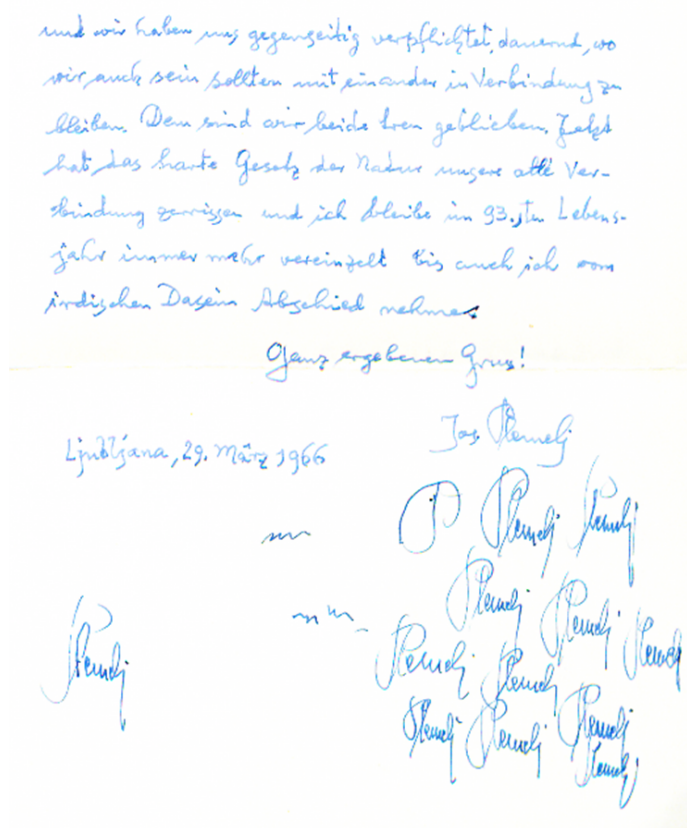 und wir haben uns gegenseitig verpflichtet, dauernd, wo
wir auch sein sollten mit einander in Verbindung zu
bleiben. Dem sind wir beide treu geblieben. Jetzt
hat das harte Gesetz der Natur unsere alte Ver-
bindung zerrissen und ich bleibe im 93.sten Lebens-
jahr immer mehr vereinzelt bis auch ich vom
irdischen Dasein Abschied nehme.
Ganz ergebenen Gruss!
Jos. Plemelj
Ljubljana, 29. März 1966
P Plemelj Plemelj
Plemelj Plemelj Plemelj
Plemelj Plemelj Plemelj
Plemelj Plemelj Plemelj
Plemelj